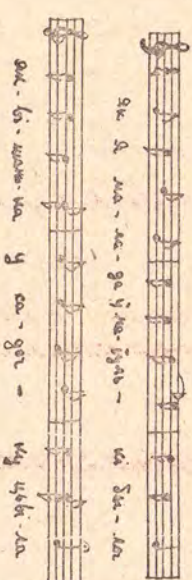 Як я ма - ла - да ў ма - туль - кі бы - ла
як - ві - шань - ка у са - доч - ку цьві - ла